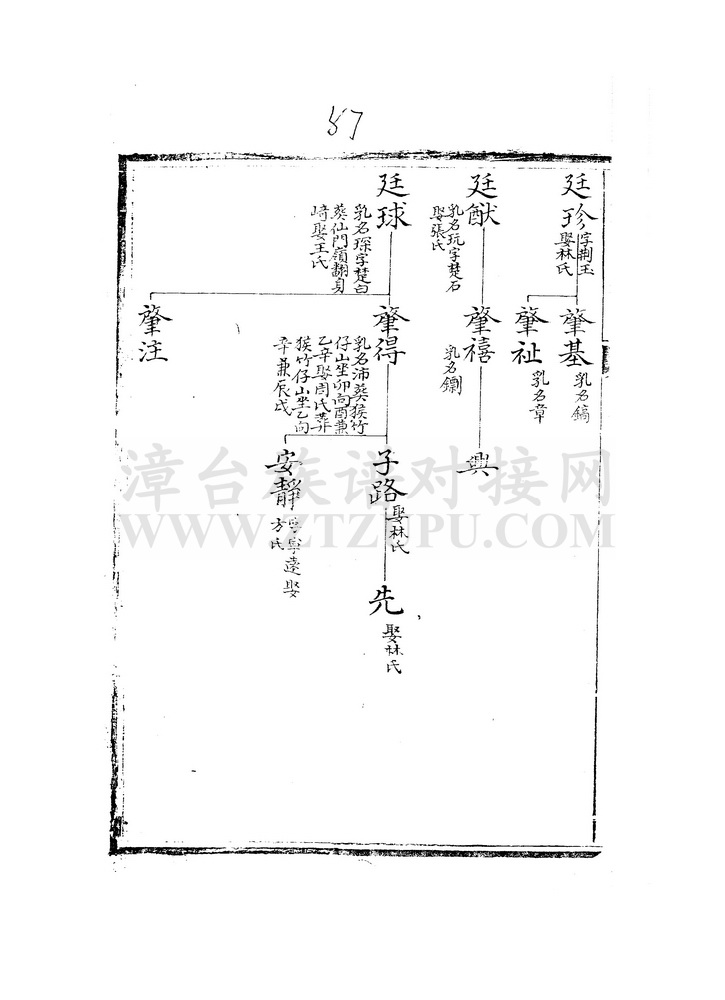 87
廷珍
字荆玉
娶林氏
肇基
乳名鎬
肇祉
乳名章
廷猷
乳名玩字楚石
娶張氏
肇禧
乳名鍘
興
廷球
乳名琛字楚白
葵仙門嶺翻身
崎娶王氏
肇得
乳名沛葵猴竹
仔山坐卯向酉兼
乙辛娶周氏葬
猴竹仔山坐乙向
辛兼辰戌
子路
娶林氏
先
娶林氏
安靜
字寧遠娶
方氏
肇注
漳台族谱对接网
WWW.ZTZUPU.COM